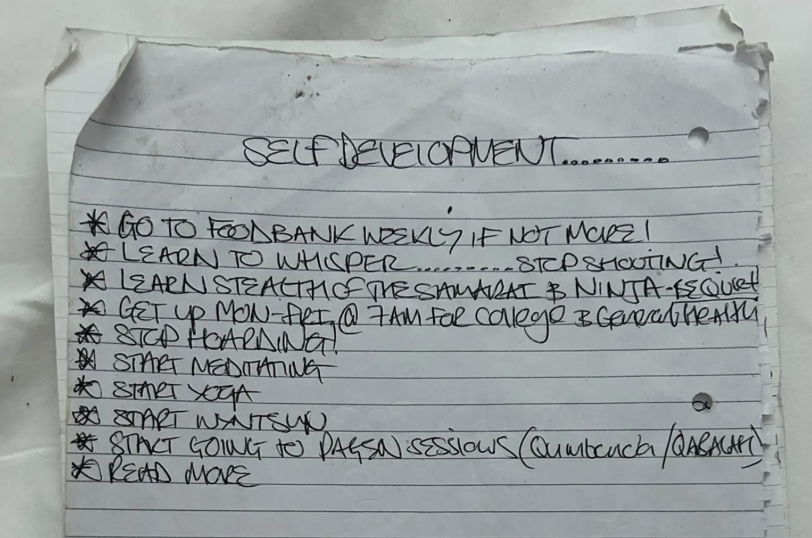 SELF DEVELOPMENT..........
* GO TO FOODBANK WEEKLY IF NOT MORE!
* LEARN TO WHISPER..........STOP SHOUTING!
* LEARN STEALTH OF THE SAMARAI & NINJA-BE QUIET
* GET UP MON-FRI @ 7AM FOR College & General HEALTH
* STOP HOARDING!
* START MEDITATING
* START YOGA
* START
* START GOING TO SESSIONS (
* READ MORE